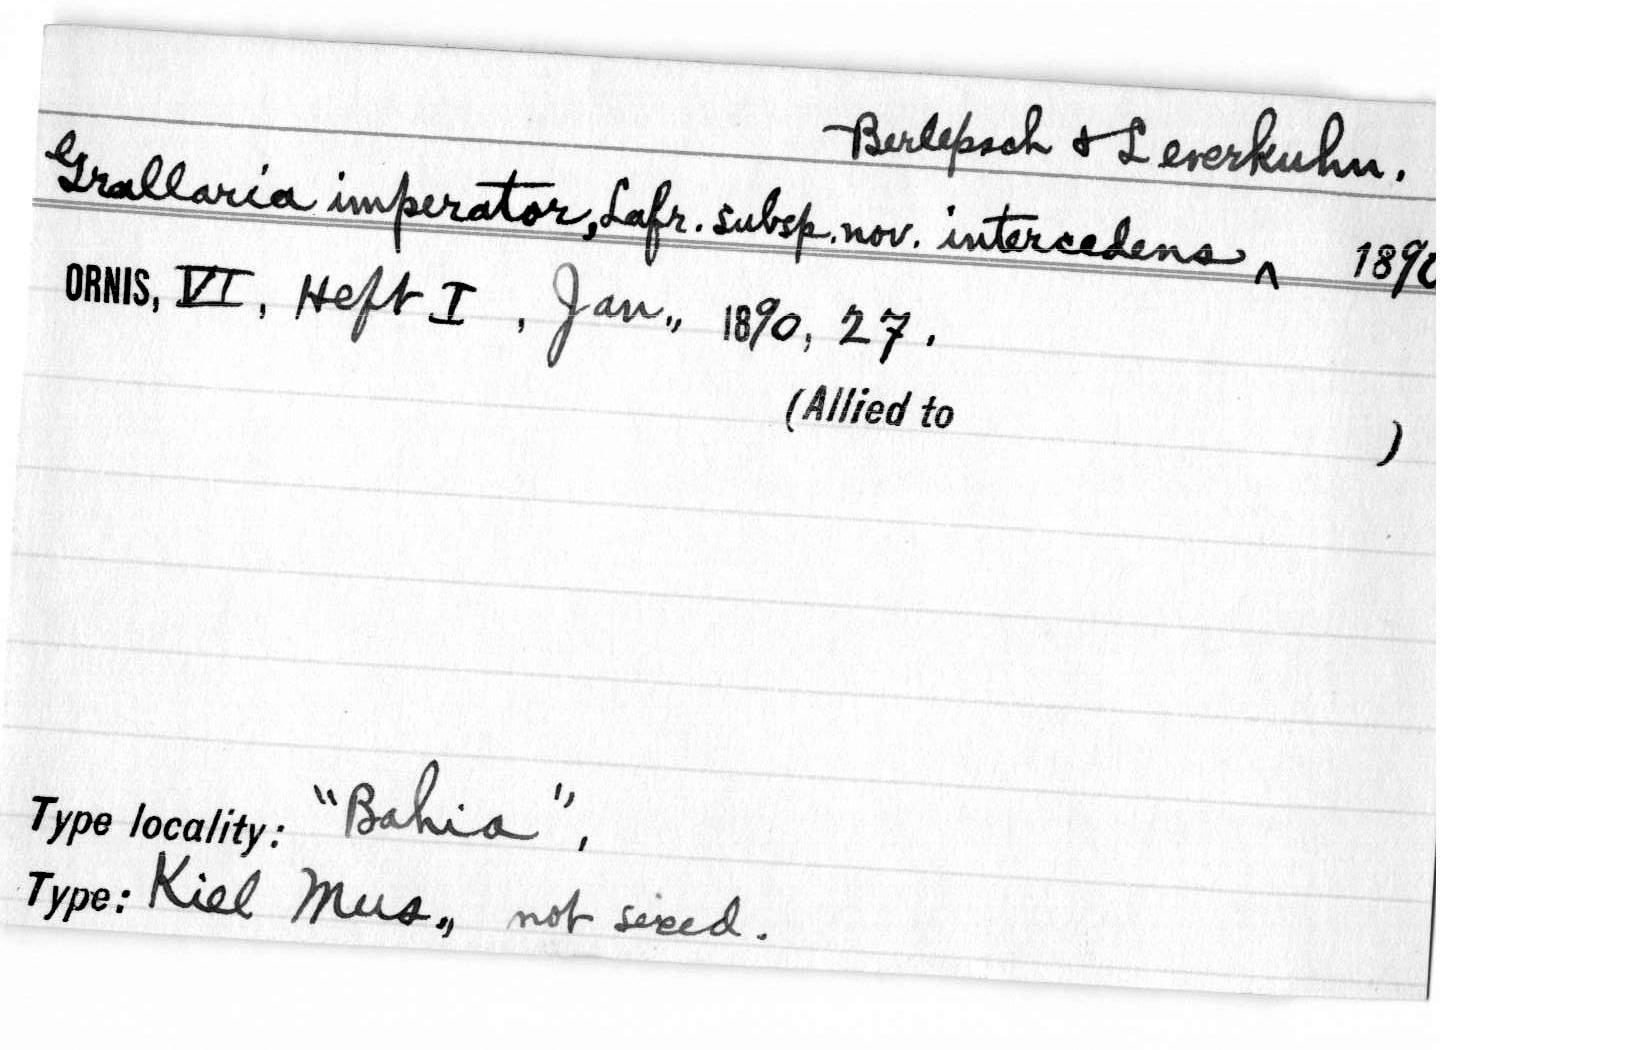 Berlepsch & Leverkuhn.
Grallaria imperator, Lafr. subsp. nov. intercedens ^ 1890
ORNIS, VI, Heft I, Jan., 1890, 27.
(Allied to )
Type locality: "Bahia",
Type: Kiel Mus., not sexed.